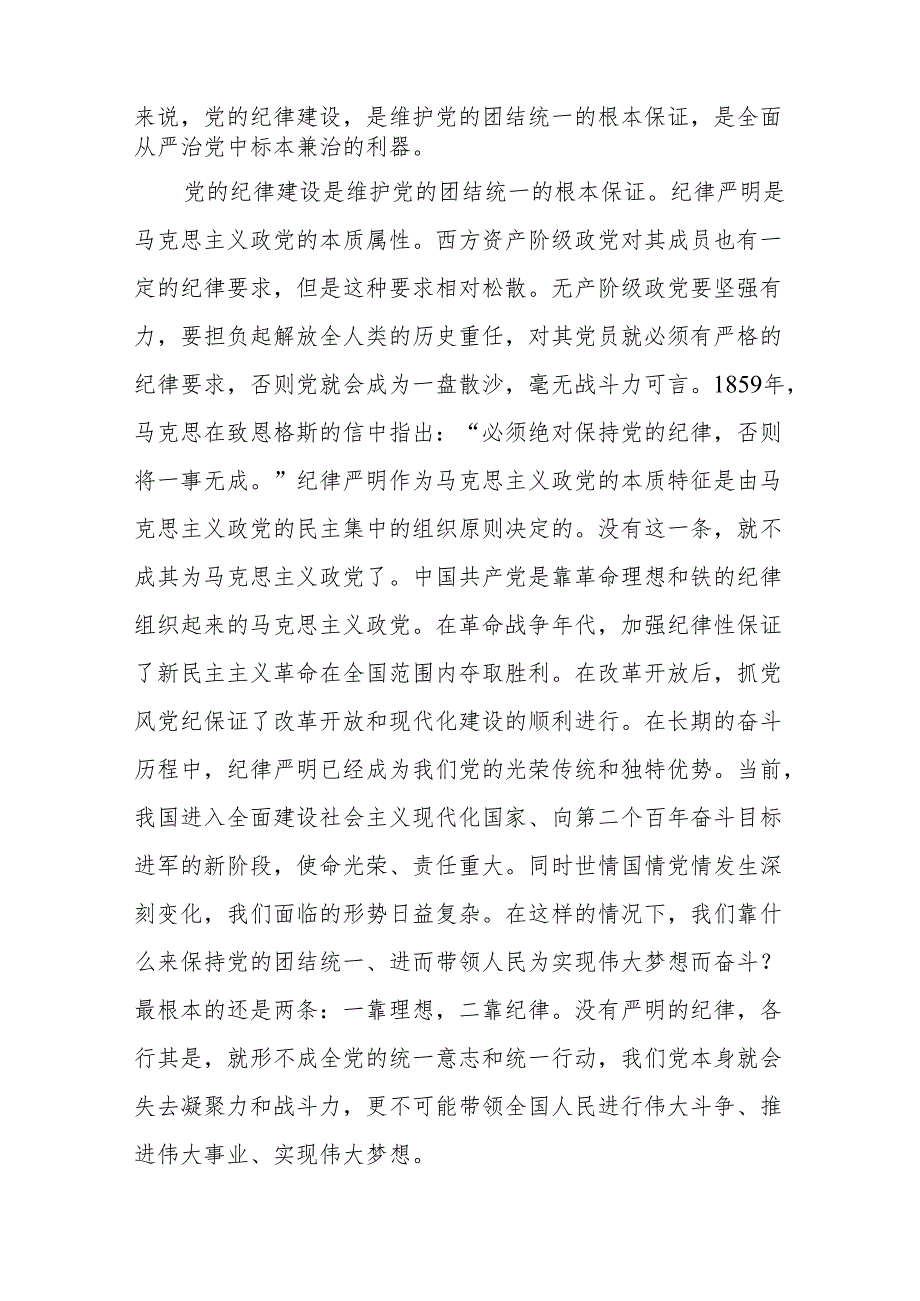 来说，党的纪律建设，是维护党的团结统一的根本保证，是全面
从严治党中标本兼治的利器。
党的纪律建设是维护党的团结统一的根本保证。纪律严明是
马克思主义政党的本质属性。西方资产阶级政党对其成员也有一
定的纪律要求，但是这种要求相对松散。无产阶级政党要坚强有
力，要担负起解放全人类的历史重任，对其党员就必须有严格的
纪律要求，否则党就会成为一盘散沙，毫无战斗力可言。1859年，
马克思在致恩格斯的信中指出：“必须绝对保持党的纪律，否则
将一事无成。”纪律严明作为马克思主义政党的本质特征是由马
克思主义政党的民主集中的组织原则决定的。没有这一条，就不
成其为马克思主义政党了。中国共产党是靠革命理想和铁的纪律
组织起来的马克思主义政党。在革命战争年代，加强纪律性保证
了新民主主义革命在全国范围内夺取胜利。在改革开放后，抓党
风党纪保证了改革开放和现代化建设的顺利进行。在长期的奋斗
历程中，纪律严明已经成为我们党的光荣传统和独特优势。当前，
我国进入全面建设社会主义现代化国家、向第二个百年奋斗目标
进军的新阶段，使命光荣、责任重大。同时世情国情党情发生深
刻变化，我们面临的形势日益复杂。在这样的情况下，我们靠什
么来保持党的团结统一、进而带领人民为实现伟大梦想而奋斗？
最根本的还是两条：一靠理想，二靠纪律。没有严明的纪律，各
行其是，就形不成全党的统一意志和统一行动，我们党本身就会
失去凝聚力和战斗力，更不可能带领全国人民进行伟大斗争、推
进伟大事业、实现伟大梦想。